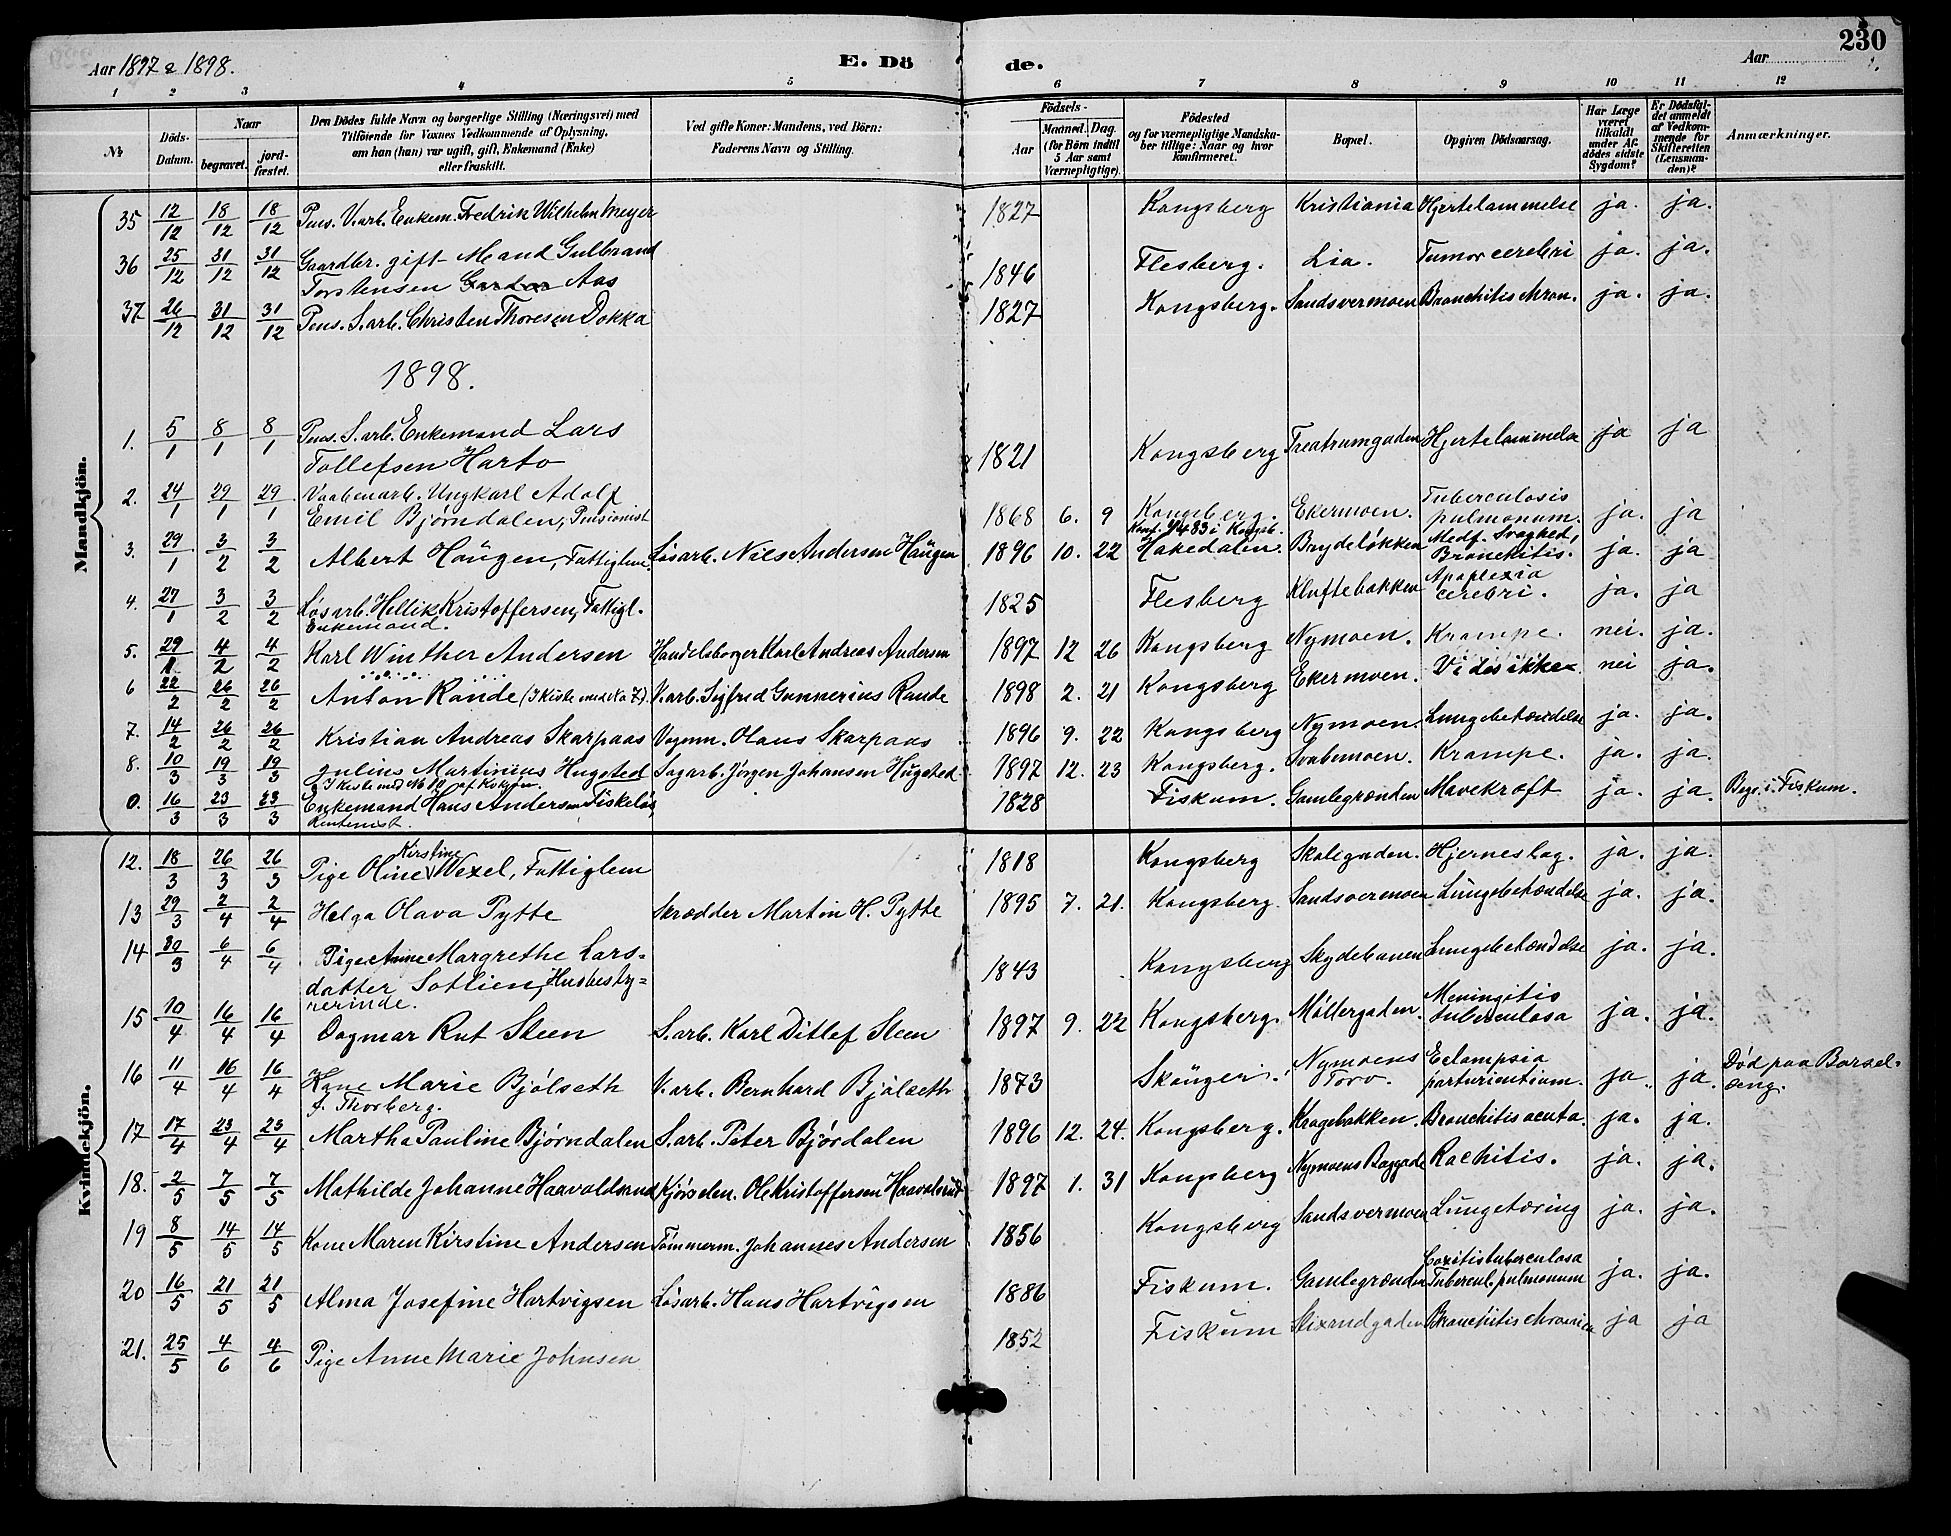 Aar 1897 & 1898.
E. Dö
de.
Aar
230
1 2 3 4 5 6 7 8 9 10 11 12
№
Döds-Datum.
Naar
begravet.
jord-fæstet.
Den Dödes fulde Navn og borgerlige Stilling (Næringsvei) med
Tilföiende for Voxnes Vedkommende af Oplysning,
om han (hun) var ugift, gift, Enkemand (Enke)
eller fraskilt.
Ved gifte Koner: Mandens, ved Börn:
Faderens Navn og Stilling.
Födsels-
Aar
Maaned. Dag.
(for Börn indtil
5 Aar samt
Værnepligtige).
Födested
og for værnepligtige Mandska-
ber tillige: Naar og hvor
konfirmeret.
Bopæl.
Opgiven Dödsaarsag.
Har Læge
været
tilkaldt
under Af-
dödes sidste
Sygdom?
Er Dödsfal-
det anmeldt
af Vedkom-
mende for
Skifteretten
(Lensman-
den)?
Anmærkninger.
Mandkjön.
35 12/12 18/12 18/12 Pens. V.arb. Enkem. Fredrik Wilhelm Meyer 1827 Kongsberg Kristiania Hjertelammelse ja. ja.
36 25/12 31/12 31/12 Gaardbr. gift Mand Gulbrand
Torstensen Aas 1846 Flesberg. Lia. Tumor cerebri ja. ja.
37 26/12 31/12 31/12 Pens. S.arb. Christen Thoresen Dokka 1827 Kongsberg. Sandsvermoen Bronchitis chron. ja. ja.
1898.
1. 5/1 8/1 8/1 Pens. S.arb. Enkemand Lars
Tollefsen Harto 1821 Kongsberg Treatrumgaden Hjertelammelse ja ja
2. 24/1 29/1 29/1 Vaabenarb. Ungkarl Adolf
Emil Bjørndalen, Pensionist 1868 6. 9 Kongsberg. Ekermoen. Tuberculosis
pulmonum. ja. ja
Konf. 7/4 83 i Kongsb.
3. 29/1 3/2 3/2 Albert Haugen, Fattiglem. Løsarb. Niels Andersen Haugen 1896 10. 22 Hakedalen. Brydeløkken Medf. Svaghed,
Bronchitis. ja. ja
4. 27/1 3/2 3/2 Løsarb. Hellik Kristoffersen, Fattigl.
Enkemand. 1825 Flesberg Kluftebakken Apoplexia
cerebri. ja. ja
5. 29/1 4/2 4/2 Karl Winther Andersen Handelsborger Karl Andreas Andersen 1897 12 26 Kongsberg Nymoen. Krampe. nei. ja.
6 22/2 26/2 26/2 Anton Rande (I Kiste med No 7). V.arb. Sigfred Gunnerius Rande 1898 2. 21 Kongsberg Ekermoen. Vides ikke nei ja.
7. 14/2 26/2 26/2 Kristian Andreas Skarpaas Vognm. Olaus Skarpaas 1896 9. 22 Kongsberg Nymoen. Lungebetændelse ja. ja.
8. 10/3 19/3 19/3 Julius Martinius Hugsted Sagarb. Jørgen Johansen Hugsted 1897 12. 23 Kongsberg. Svabemoen. Krampe. ja. ja.
I Kiste med No 10 af Kvkjøn.
0. 16/3 23/3 23/3 Enkemand Hans Andersen Fiskeløs,
Rentenist. 1828 Fiskum. Gamlegrænden Mavekræft ja. ja. Begr. i Fiskum.
Kvindekjön.
12. 18/3 26/3 26/3 Pige Oline Kirstine Wexel, Fattiglem 1818 Kongsberg Skolegaden. Hjerneslag. ja. ja.
13 29/3 2/4 2/4 Helga Olava Pytte Skrædder Martin H. Pytte 1895 7. 21. Kongsberg. Sandsvermoen Lungebetændelse ja. ja.
14 30/3 6/4 6/4 Pige Anne Margrethe Lars-
datter Sotlien, Husbesty-
rerinde. 1843 Kongsberg Skydebanen Lungebetændelse ja. ja.
15 10/4 16/4 16/4 Dagmar Rut Steen S.arb. Karl Ditlef Steen 1897 9. 22 Kongsberg. Møllergaden. Meningitis
tuberculosa ja. ja.
16 11/4 16/4 16/4 Kone Marie Bjølseth
f. Thorberg. V.arb. Bernhard Bjølseth 1873 Skauger. Nymoens
Torv. Eclampsia
parturientium. ja. ja. Død paa Barsel-
seng.
17 17/4 23/4 23/4 Martha Pauline Bjørndalen S.arb. Peter Bjørdalen 1896 12. 24. Kongsberg. Kragebakken. Bronchitis acuta. ja. ja.
18. 2/5 7/5 7/5 Mathilde Johanne Haavoldsrud Kjørselm. Ole Kristoffersen Haavolsrud 1897 1. 31 Kongsberg Nymoens Baggade Rachitis. ja. ja.
19 8/5 14/5 14/5 Kone Maren Kirstine Andersen Tømmerm. Johannes Andersen 1856 Kongsberg Sandsvermoen Lungetæring ja. ja.
20 16/5 21/5 21/5 Alma Josefine Hartvigsen Løsarb. Hans Hartvigsen 1886 Fiskum. Gamlegrænden Coxitis tuberculosa
Tubercul. pulmonum ja. ja.
21. 25/5 4/6 4/6 Pige Anne Marie Johnsen 1852 Fiskum Bronchitis chronica ja ja